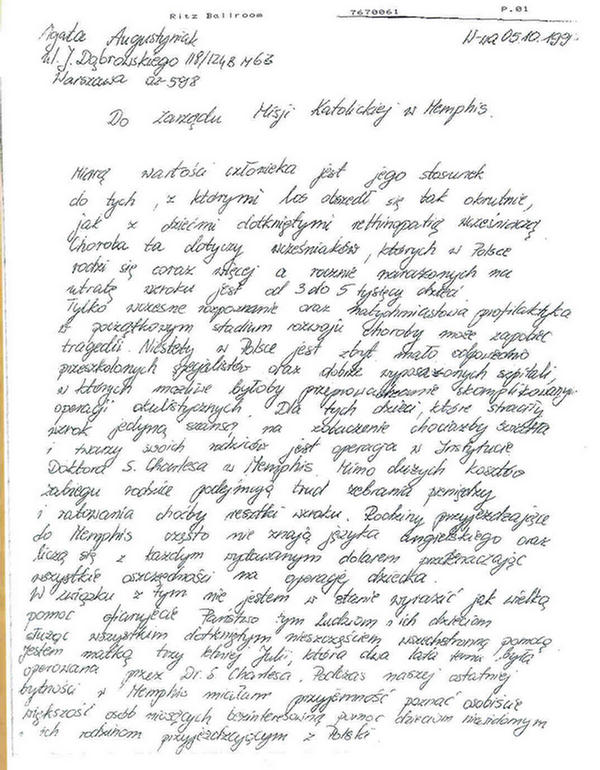 Ritz Ballroom 7670061 P.01
Agata Augustyniak
ul. J. Dąbrowskiego 118/124B m 63
Warszawa 02-598
W-wa 05.10.199
Do Zarządu Misji Katolickiej w Memphis.
Miarą wartości człowieka jest jego stosunek
do tych, z którymi los obszedł się tak okrutnie,
jak z dziećmi dotkniętymi rethinopatią wcześniaczą
Choroba ta dotyczy wcześniaków, których w Polsce
rodzi się coraz więcej a rocznie narażonych na
utratę wzroku jest od 3 do 5 tysięcy dzieci.
Tylko wczesne rozpoznanie oraz natychmiastowa profilaktyka
w początkowym stadium rozwoju choroby może zapobiec
tragedii. Niestety w Polsce jest zbyt mało odpowiednio
przeszkolonych specjalistów oraz dobrze wyposażonych szpitali
w których możliwe byłoby przeprowadzanie skomplikowanych
operacji okulistycznych. Dla tych dzieci, które straciły
wzrok jedyną szansą na zobaczenie chociażby światła
i twarzy swoich rodziców jest operacja w Instytucie
Doktora S. Charlesa w Memphis. Mimo dużych kosztów
zabiegu rodzice podejmują trud zebrania pieniędzy
i ratowania choćby resztki wzroku. Rodziny przyjeżdżające
do Memphis często nie znają języka angielskiego oraz
liczą się z każdym wydawanym dolarem przeznaczając
wszystkie oszczędności na operację dziecka.
W związku z tym nie jestem w stanie wyrazić jak wielką
pomoc ofiarujecie Państwo tym ludziom i ich dzieciom
służąc wszystkim dotkniętym nieszczęściem wszechstronną pomocą.
Jestem matką trzy letniej Juli, która dwa lata temu była
operowana przez Dr. S Charlesa. Podczas naszej ostatniej
bytności w Memphis miałam przyjemność poznać osobiście
większość osób niosących bezinteresowną pomoc dzieciom niewidomym
i ich rodzinom przyjeżdżającym z Polski.